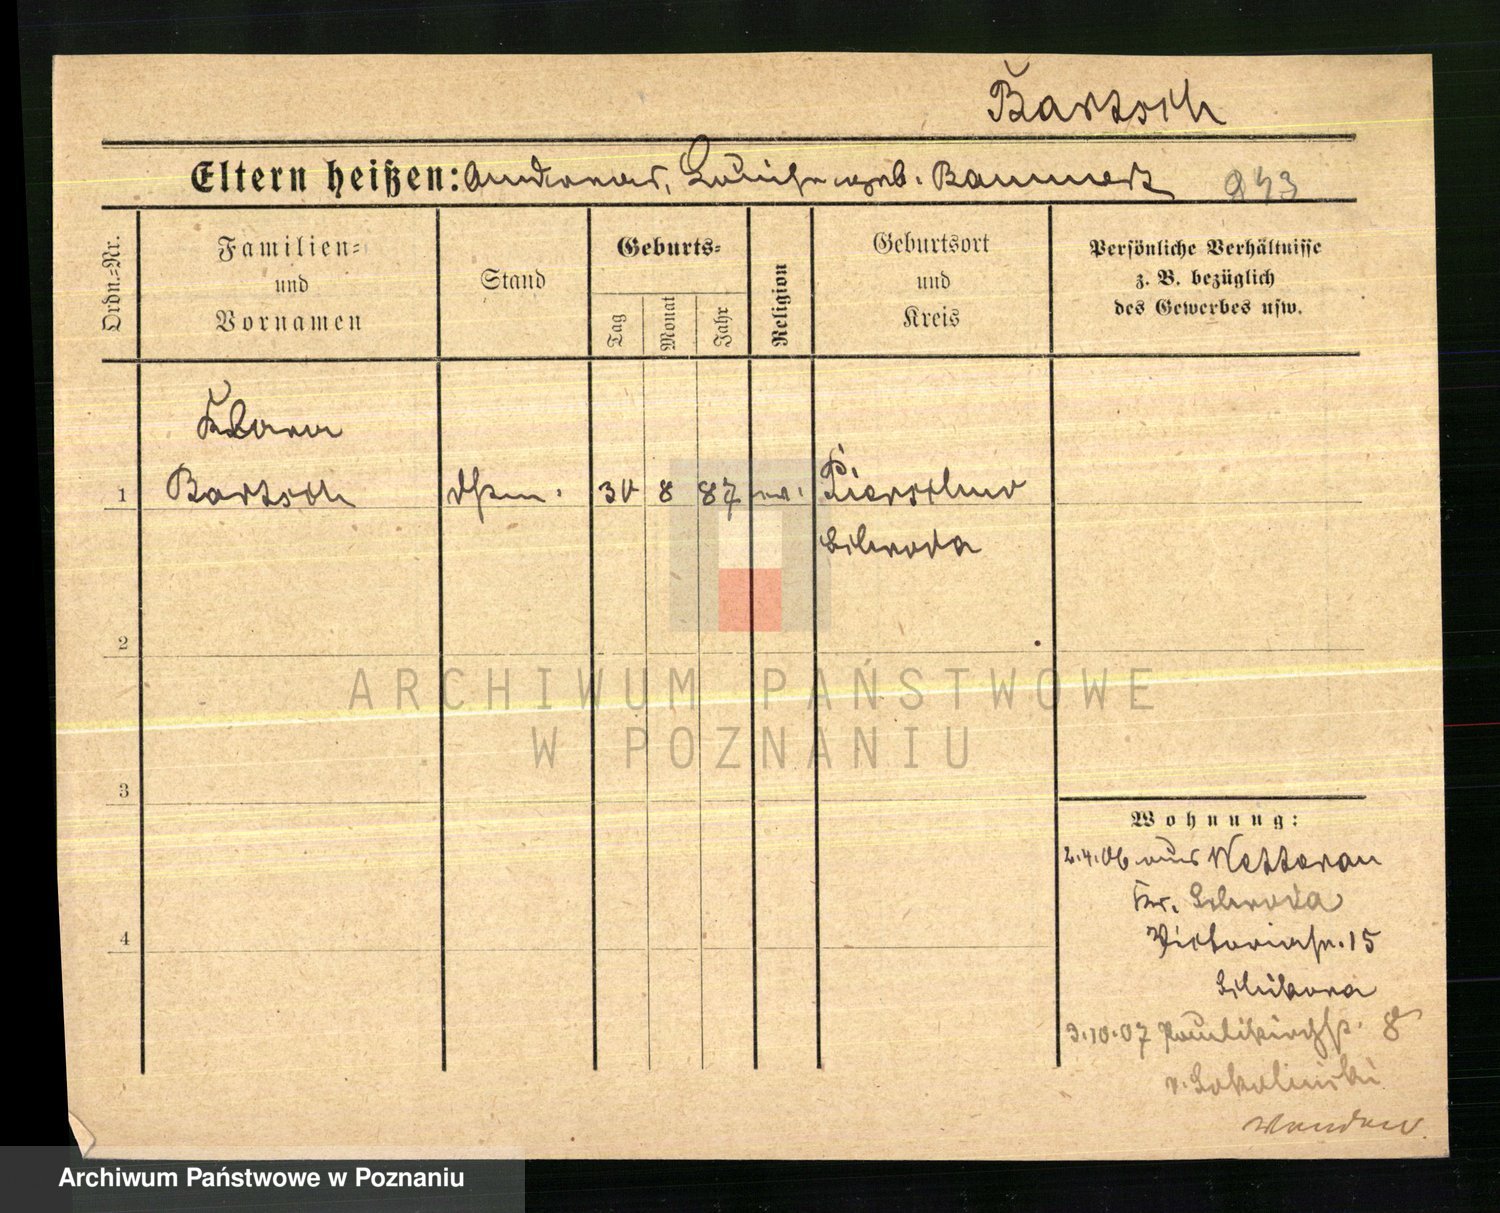 Bartsch
Eltern heißen: Andreas, Louise geb. Bammert 943
Ordn.=Nr.
Familien=
und
Vornamen
Stand
Geburts=
Tag
Monat
Jahr
Religion
Geburtsort
und
Kreis
Persönliche Verhältnisse
z. B. bezüglich
des Gewerbes usw.
Klara
1 Bartsch 30 8 87
Schroda
2
3
4
Wohnung:
2.4.06 aus
Kr. Schroda
Victoriastr. 15
Schikora
3.10.07 Paulikirchstr. 8
v. Sokolinski
Wenden.
ARCHIWUM PAŃSTWOWE
W POZNANIU
Archiwum Państwowe w Poznaniu